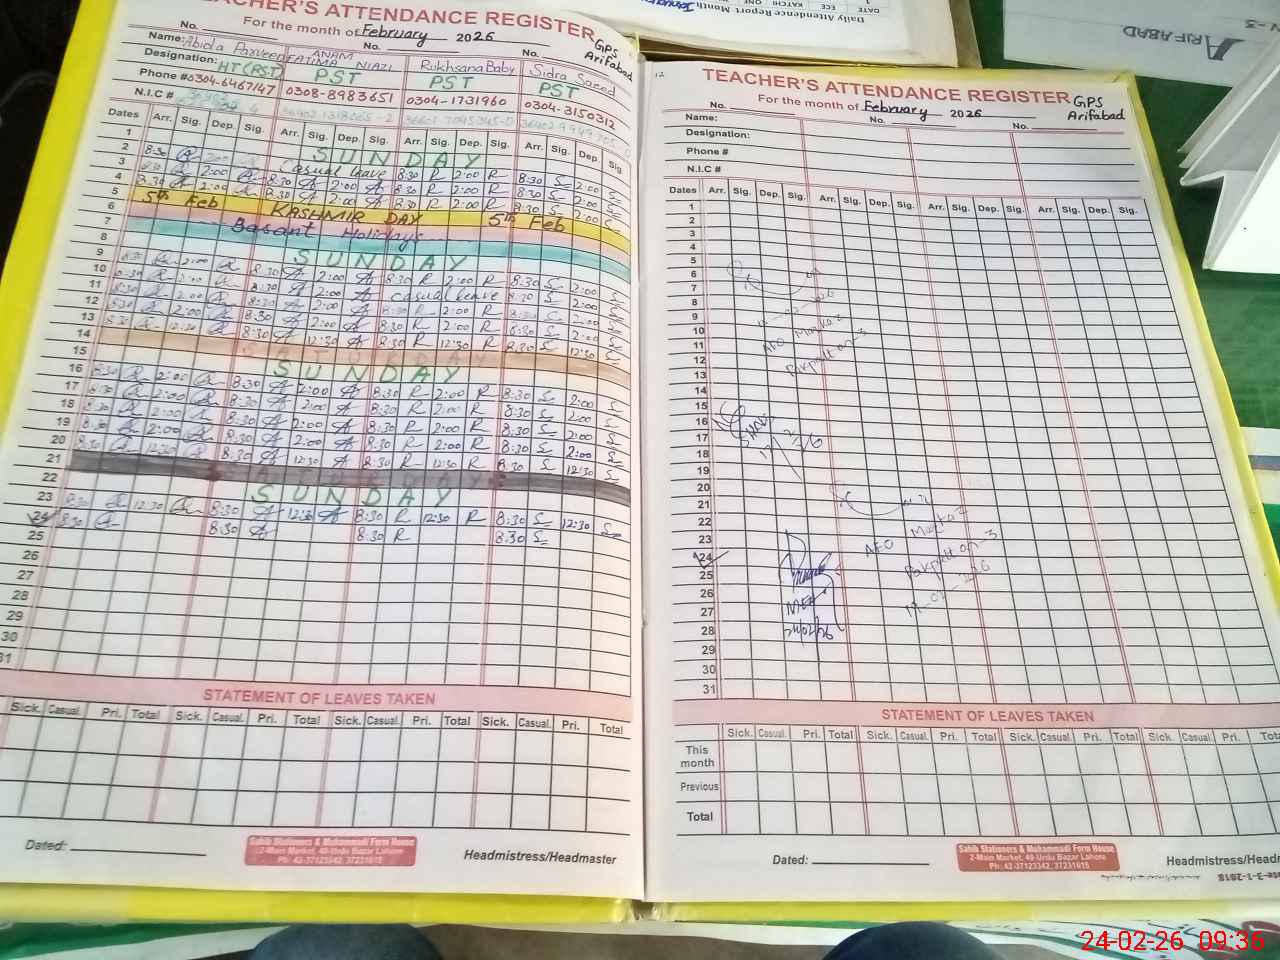 TEACHER'S ATTENDANCE REGISTER
For the month of February 2026
GPS
Arifabad
No. No. No.
Name: Abida Parveen ANAM FATIMA NIAZI Rukhsana Baby Sidra Saeed
Designation: HT (PST) PST PST PST
Phone # 0304-6467147 0308-8983651 0304-1731960 0304-3150312
N.I.C #
Dates Arr. Sig. Dep. Sig. Arr. Sig. Dep. Sig. Arr. Sig. Dep. Sig. Arr. Sig. Dep. Sig.
1 SUNDAY
2 8:30 2:00 Casual leave 8:30 R 2:00 R 8:30 S 2:00 S
3 8:30 2:00 8:30 A 2:00 A 8:30 R 2:00 R 8:30 S 2:00 S
4 8:30 2:00 8:30 A 2:00 A 8:30 R 2:00 R 8:30 S 2:00 S
5 5th Feb KASHMIR DAY 5th Feb
6 Basant Holidays
7
8 SUNDAY
9 8:30 2:00 8:30 A 2:00 A 8:30 R 2:00 R 8:30 S 2:00 S
10 8:30 2:00 8:30 A 2:00 A Casual leave 8:30 S 2:00 S
11 8:30 2:00 8:30 A 2:00 A 8:30 R 2:00 R 8:30 S 2:00 S
12 8:30 2:00 8:30 A 2:00 A 8:30 R 2:00 R 8:30 S 2:00 S
13 8:30 12:30 8:30 A 12:30 A 8:30 R 12:30 R 8:30 S 12:30 S
14 SATURDAY
15 SUNDAY
16 8:30 2:00 8:30 A 2:00 A 8:30 R 2:00 R 8:30 S 2:00 S
17 8:30 2:00 8:30 A 2:00 A 8:30 R 2:00 R 8:30 S 2:00 S
18 8:30 2:00 8:30 A 2:00 A 8:30 R 2:00 R 8:30 S 2:00 S
19 8:30 2:00 8:30 A 2:00 A 8:30 R 2:00 R 8:30 S 2:00 S
20 8:30 12:30 8:30 A 12:30 A 8:30 R 12:30 R 8:30 S 12:30 S
21
22 SUNDAY
23 8:30 12:30 8:30 A 12:30 A 8:30 R 12:30 R 8:30 S 12:30 S
24 8:30 8:30 A 8:30 R 8:30 S
25
26
27
28
29
30
31
STATEMENT OF LEAVES TAKEN
Sick. Casual. Pri. Total Sick. Casual. Pri. Total Sick. Casual. Pri. Total Sick. Casual. Pri. Total
Dated:
Sahib Stationers & Muhammadi Form House
2-Main Market, 40-Urdu Bazar Lahore
Ph: 42-37123342, 37231615
Headmistress/Headmaster
12
TEACHER'S ATTENDANCE REGISTER
For the month of February 2026
GPS
Arifabad
No. No. No.
Name:
Designation:
Phone #
N.I.C #
Dates Arr. Sig. Dep. Sig. Arr. Sig. Dep. Sig. Arr. Sig. Dep. Sig. Arr. Sig. Dep. Sig.
1
2
3
4
5
6
7
8
9
10
11
12
13
14
15
16
17
18
19
20
21
22
23
24
25
26
27
28
29
30
31
AEO Markaz
Pakpattan-3
AEO Markaz
Pakpattan-3
MEA
24/02/26
STATEMENT OF LEAVES TAKEN
Sick. Casual. Pri. Total Sick. Casual. Pri. Total Sick. Casual. Pri. Total Sick. Casual. Pri.
This month
Previous
Total
Dated:
Sahib Stationers & Muhammadi Form House
2-Main Market, 40-Urdu Bazar Lahore
Ph: 42-37123342, 37231615
Headmistress/Head
Daily Attendance Report Month
DATE ECE KATCHI ONE
ARIFABAD
24-02-26 09:36